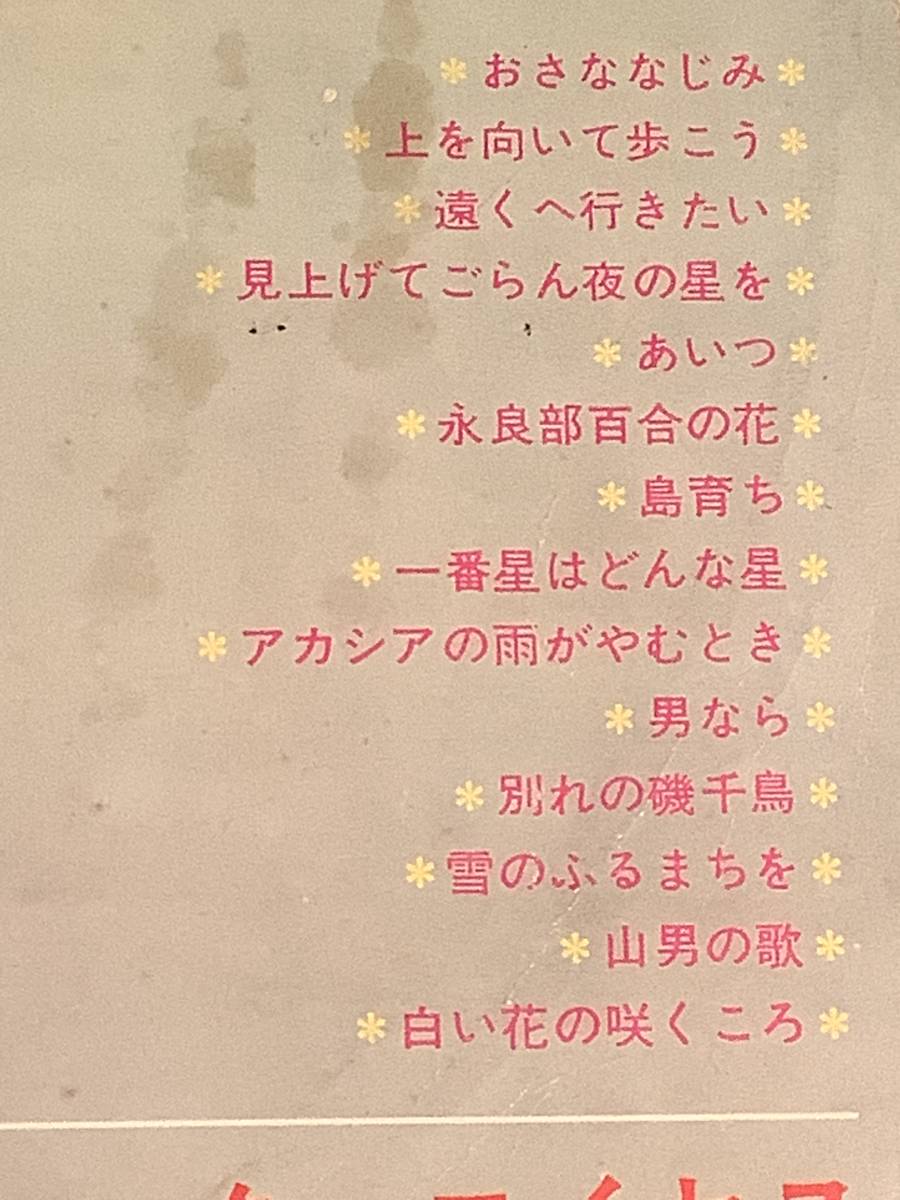 *おさななじみ*
*上を向いて歩こう*
*遠くへ行きたい*
*見上げてごらん夜の星を*
*あいつ*
*永良部百合の花*
*島育ち*
*一番星はどんな星*
*アカシアの雨がやむとき*
*男なら*
*別れの磯千鳥*
*雪のふるまちを*
*山男の歌*
*白い花の咲くころ*